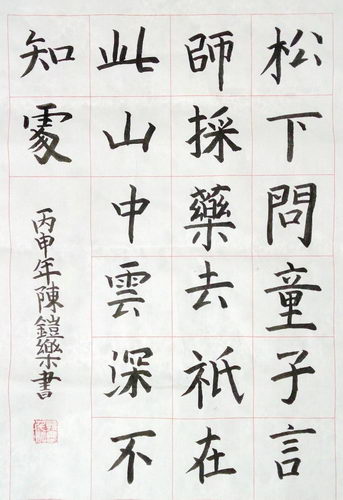 松下問童子言
師採藥去祇在
此山中雲深不
知處
丙申年陳鎧樂書